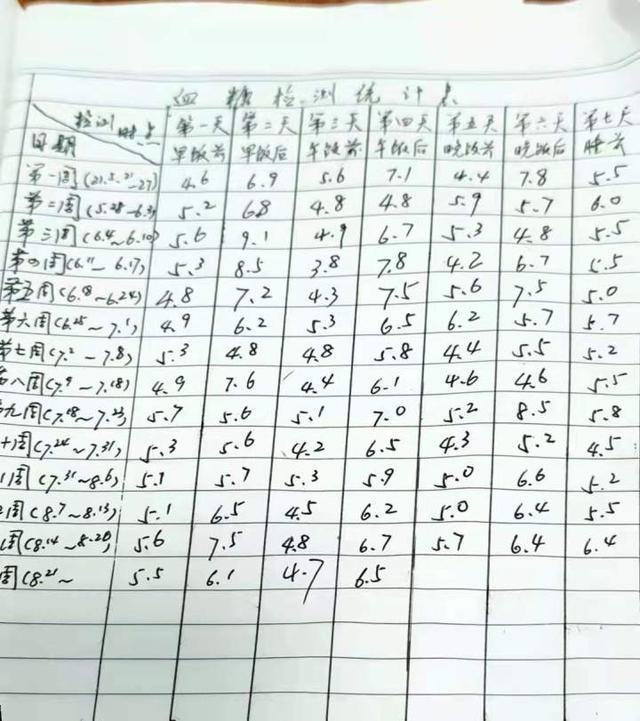 血糖检测统计表
检测时点 第一天 第二天 第三天 第四天 第五天 第六天 第七天
日期 早饭前 早饭后 午饭前 午饭后 晚饭前 晚饭后 睡前
第一周(21.5.21~27) 4.6 6.9 5.6 7.1 4.4 7.8 5.5
第二周(5.28~6.3) 5.2 6.8 4.8 4.8 5.9 5.7 6.0
第三周(6.4~6.10) 5.6 9.1 4.9 6.7 5.3 4.8 5.5
第四周(6.11~6.17) 5.3 8.5 3.8 7.8 4.2 6.7 5.5
第五周(6.18~6.24) 4.8 7.2 4.3 7.5 5.6 7.5 5.0
第六周(6.25~7.1) 4.9 6.2 5.3 6.5 6.2 5.7 5.7
第七周(7.2~7.8) 5.3 4.8 4.8 5.8 4.4 5.5 5.2
八周(7.9~7.18) 4.9 7.6 4.4 6.1 4.6 4.6 5.5
九周(7.18~7.23) 5.7 5.6 5.1 7.0 5.2 8.5 5.8
十周(7.24~7.31) 5.3 5.6 4.2 6.5 4.3 5.2 4.5
周(7.31~8.6) 5.1 5.7 5.3 5.9 5.0 6.6 5.2
周(8.7~8.13) 5.1 6.5 4.5 6.2 5.0 6.4 5.5
周(8.14~8.20) 5.6 7.5 4.8 6.7 5.7 6.4 6.4
周(8.21~ 5.5 6.1 4.7 6.5